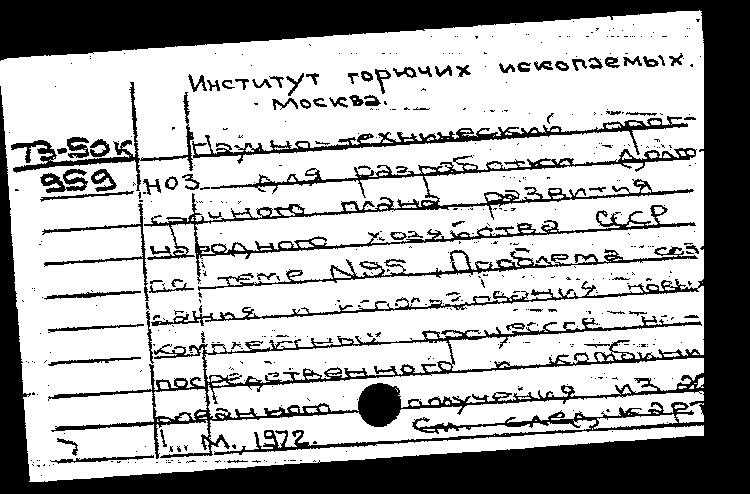 Институт горючих ископаемых.
Москва.
73-50к
959
Научно-технический прог-
ноз для разработки долго-
срочного плана развития
народного хозяйства СССР
по теме N95 „Проблема соз-
дания и использования новых
комплектных процессов не-
посредственного и комбини
рованного получения из
... М., 1972.
См. след. карт